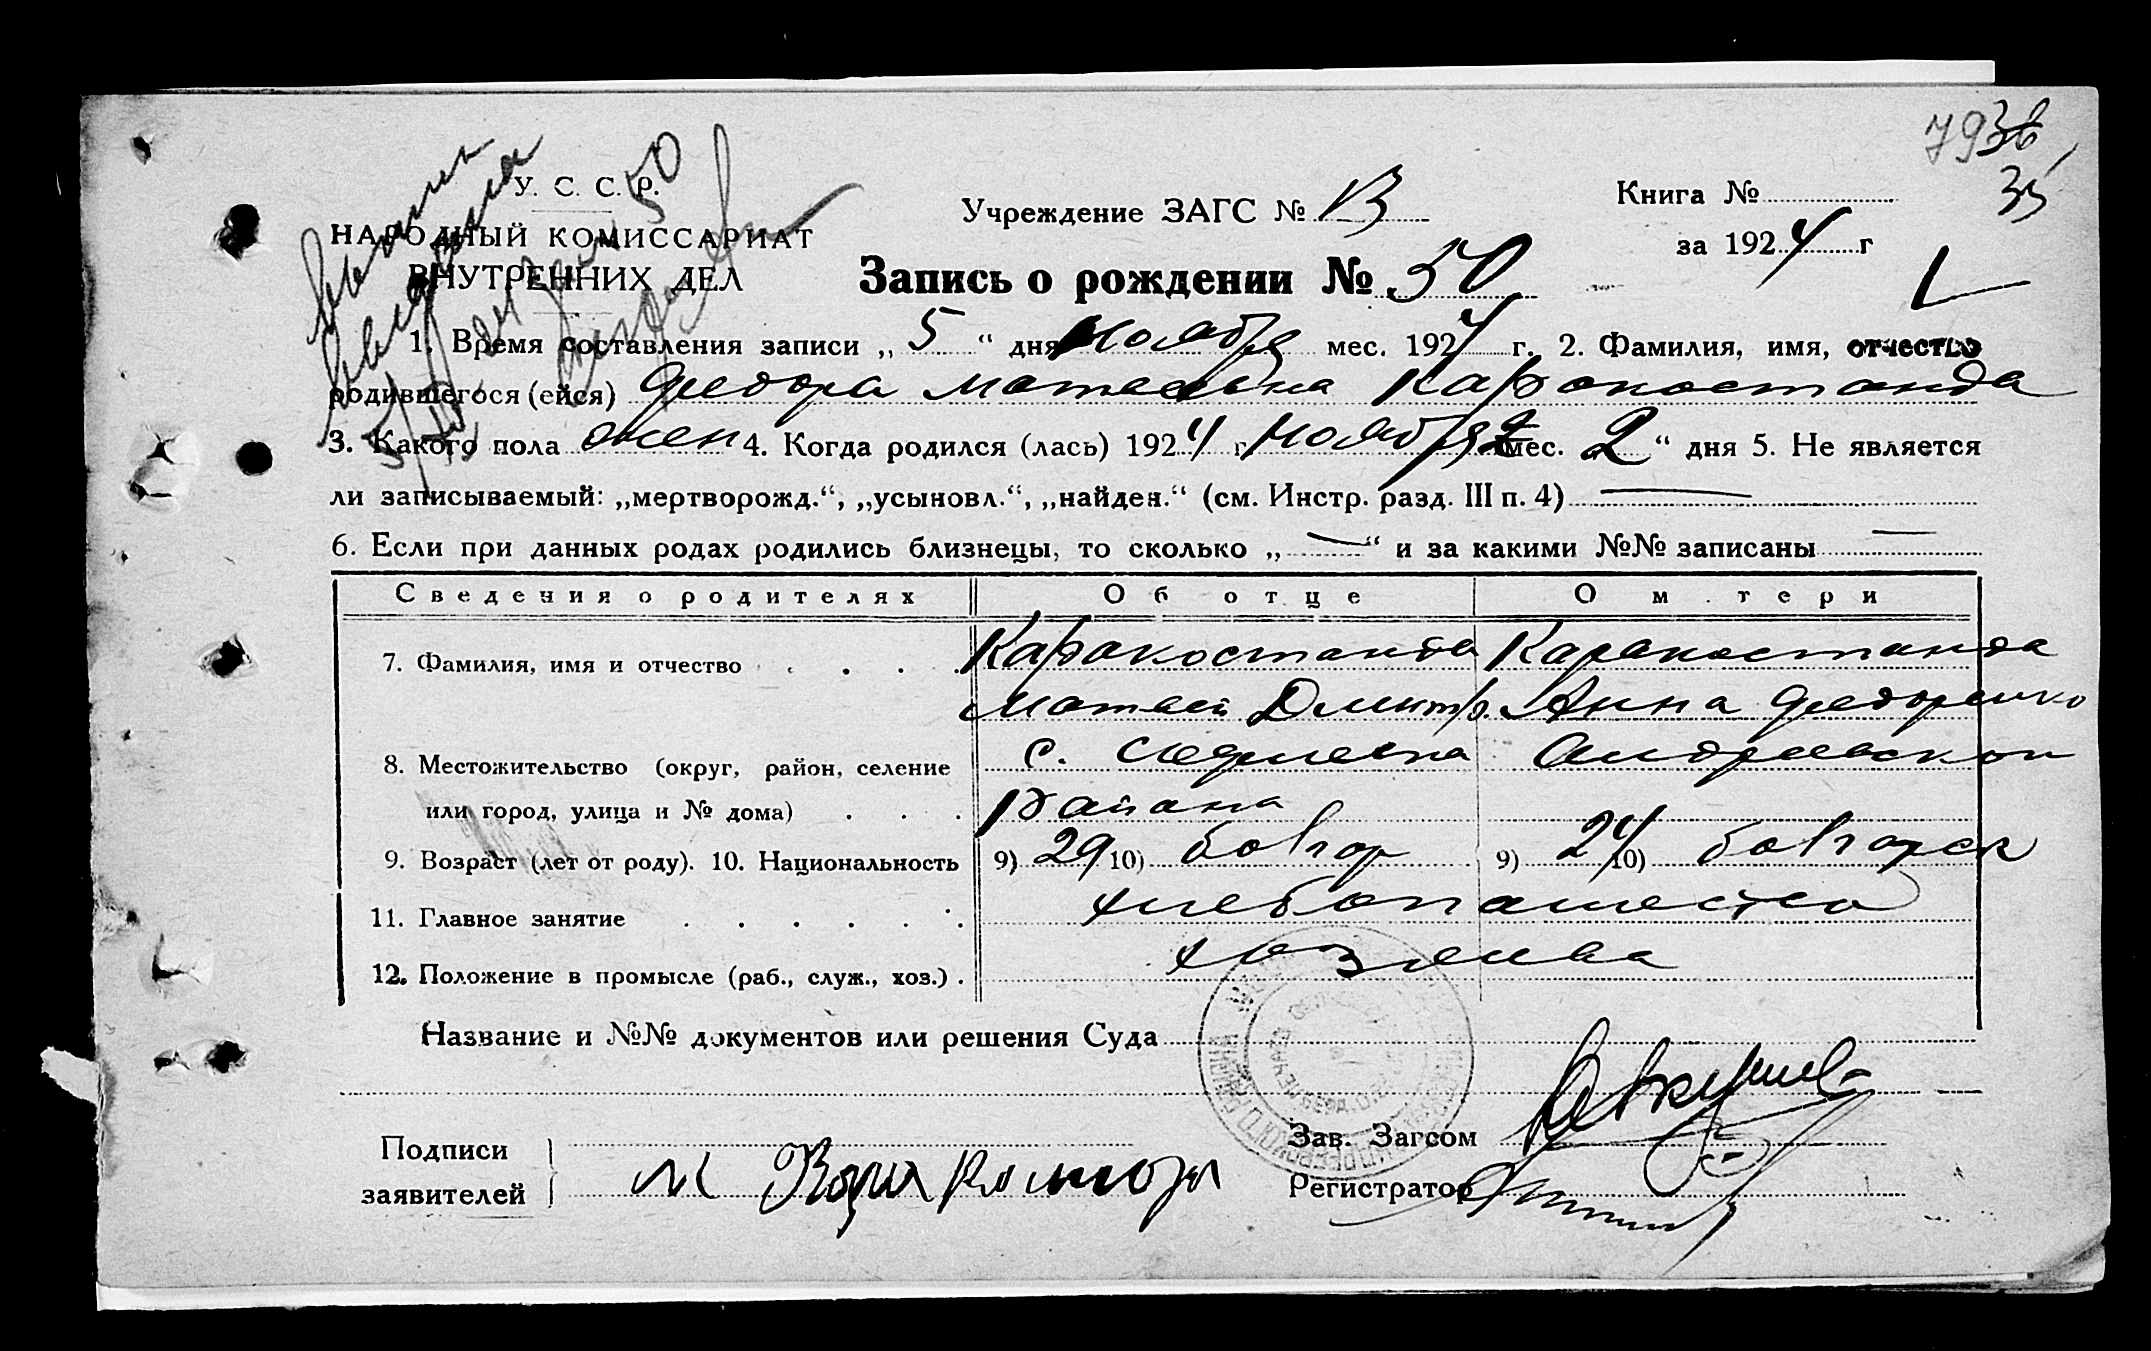 79 36
35
У. С. С. Р.
НАРОДНЫЙ КОМИССАРИАТ
ВНУТРЕННИХ ДЕЛ
Учреждение ЗАГС №
Книга №
за 1924 г
Запись о рождении № 50
1. Время составления записи „5“ дня ноября мес. 1924 г. 2. Фамилия, имя, отчество
родившегося (ейся) Федора Матвеевна Каракостанда
3. Какого пола жен 4. Когда родился (лась) 1924 г ноября мес. „2“ дня 5. Не является
ли записываемый: „мертворожд.“, „усыновл.“, „найден.“ (см. Инстр. разд. III п. 4) —
6. Если при данных родах родились близнецы, то сколько „—“ и за какими №№ записаны —
Сведения о родителях Об отце О м тери
7. Фамилия, имя и отчество Каракостанда Каракостанда
Матвей Дмитр. Анна
8. Местожительство (округ, район, селение с. Андреевского
или город, улица и № дома) района
9. Возраст (лет от роду). 10. Национальность 9) 29 10) болгар 9) 24 10) болгарск
11. Главное занятие хлебопашество
12. Положение в промысле (раб., служ., хоз.) хозяева
Название и №№ документов или решения Суда
Подписи
заявителей
Зав. Загсом
Регистратор